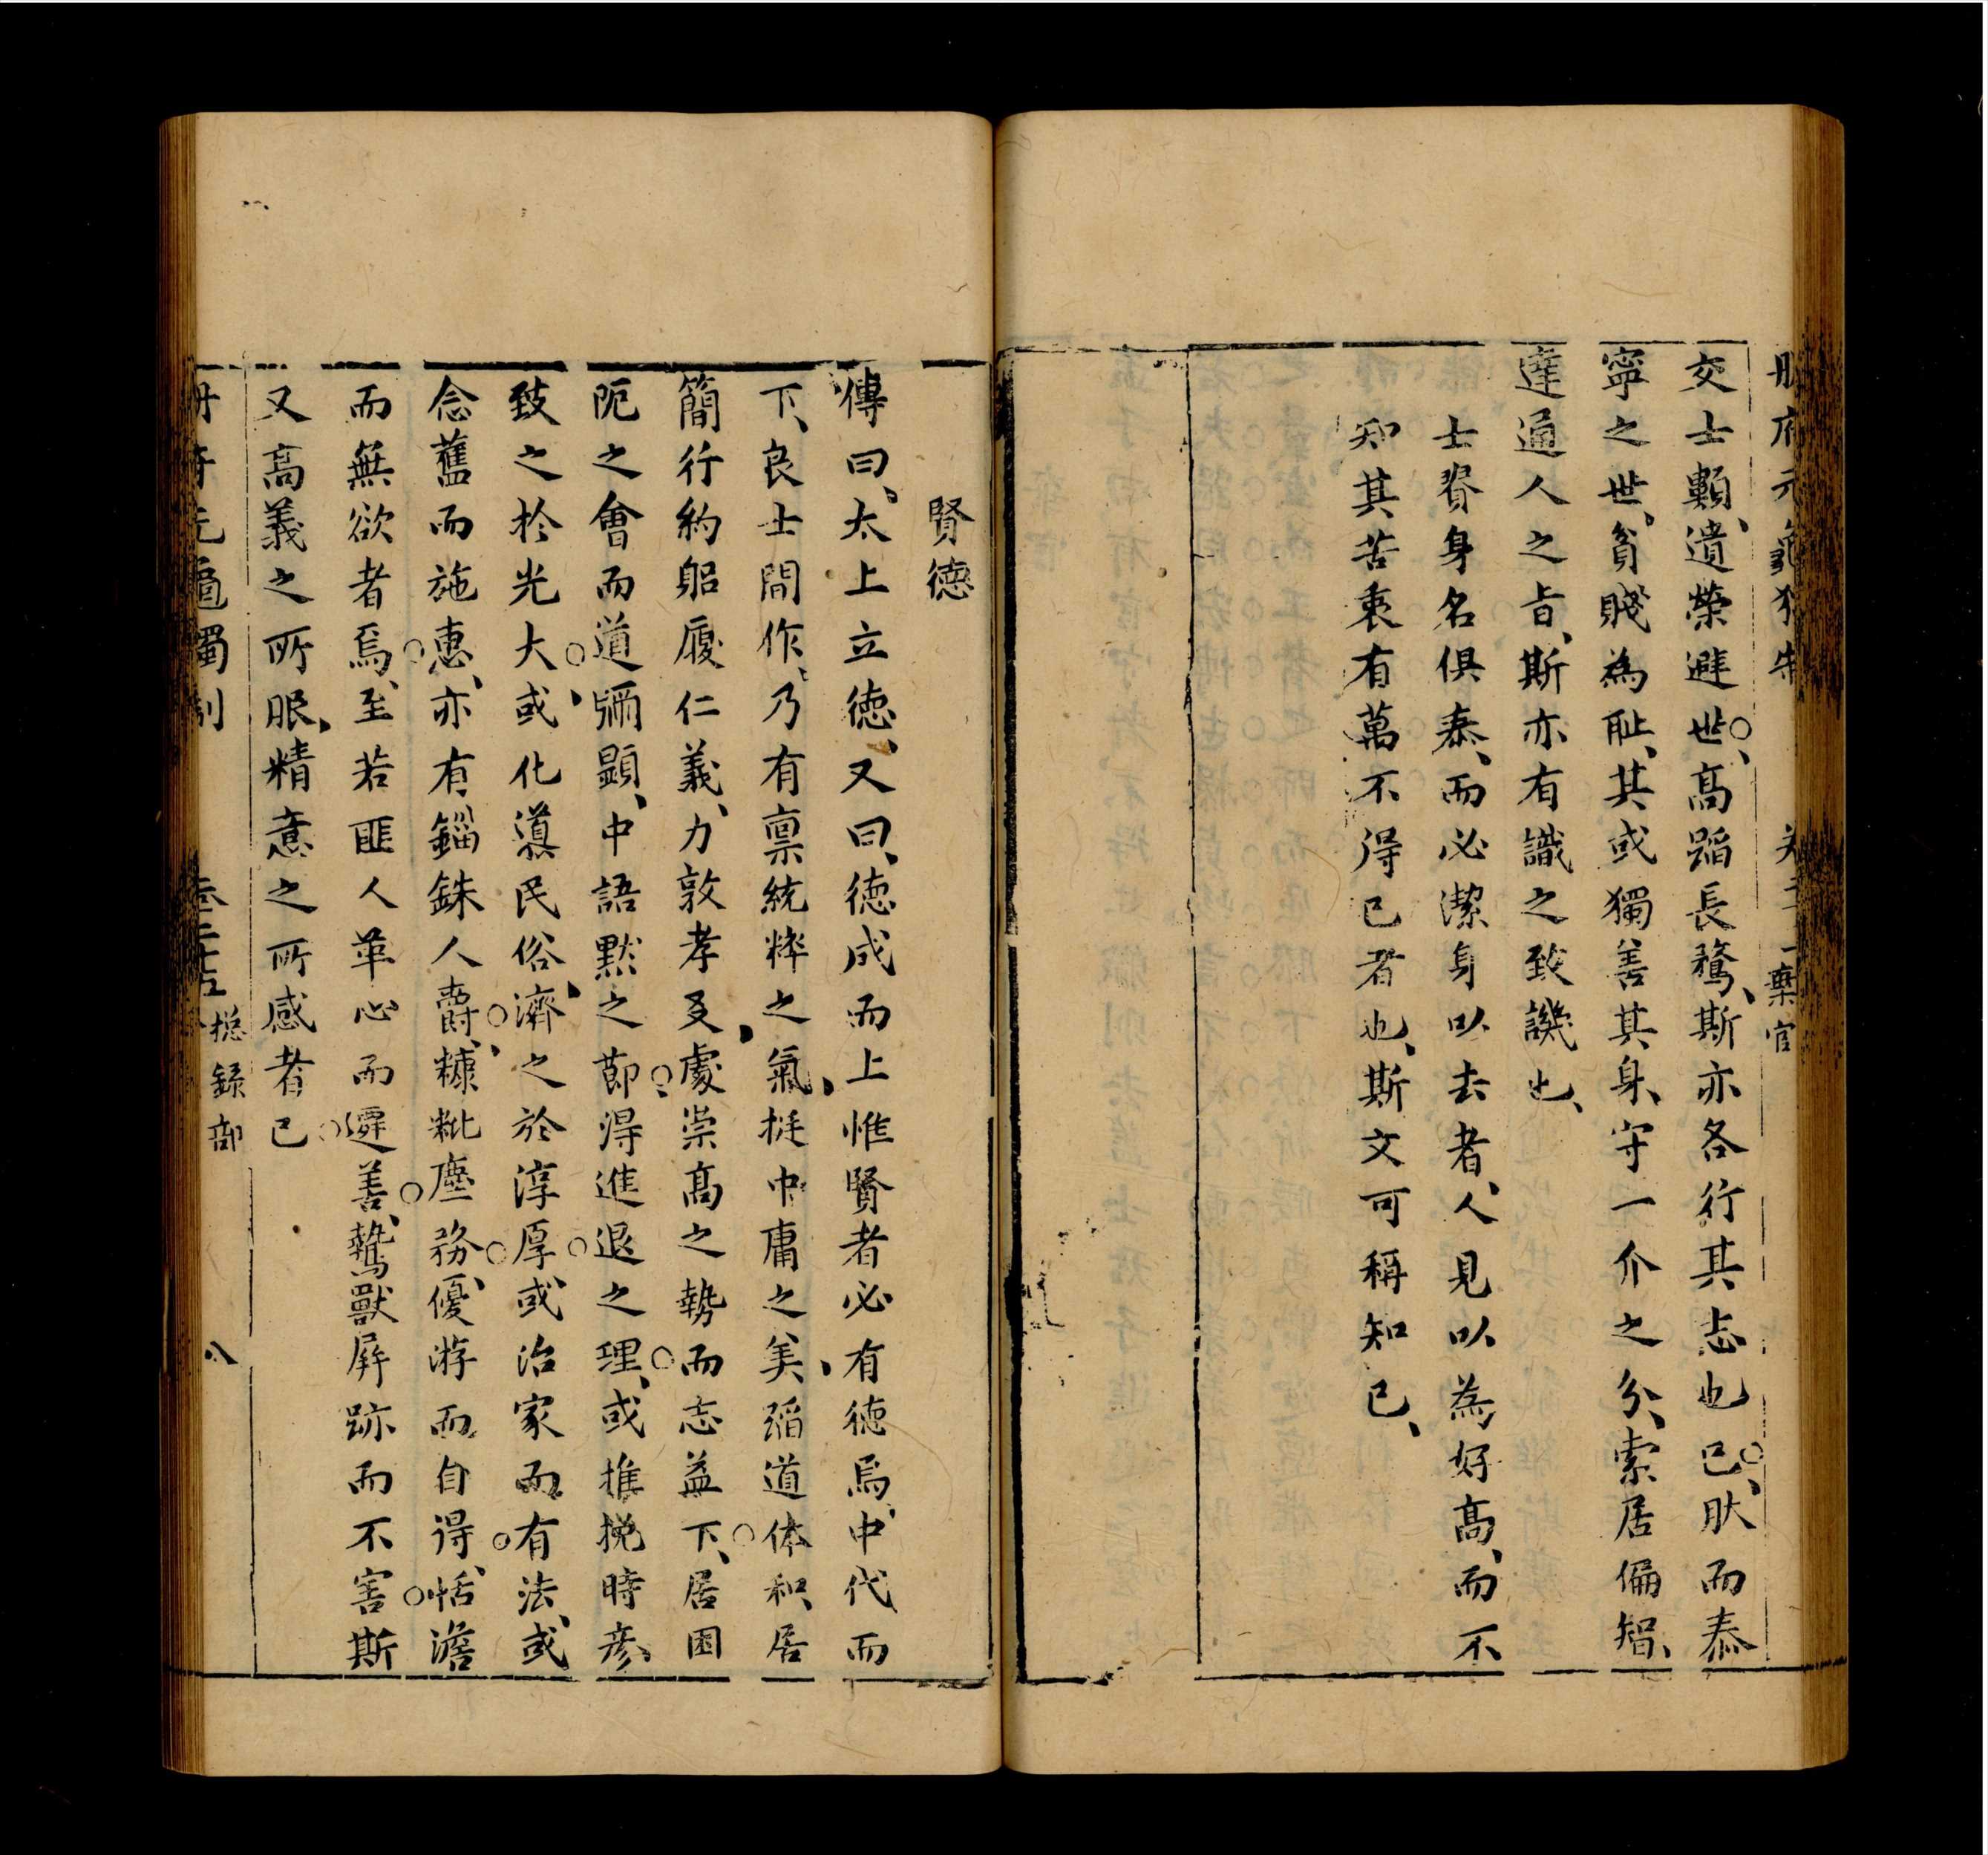 府元龜獨 棄官
交士顆遺榮避世高蹈長騖斯亦各行其志也已肰而泰
寧之世貧賤為耻其或獨善其身守一介之分索居偏智
達通人之旨斯亦有識之致譏也
士貴身名俱泰而必潔身以去者人見以為好高而不
知其苦衷有萬不得已者也斯文可稱知已
賢德
傳曰太上立德又曰德成而上惟賢者必有德焉中代而
下良士間作乃有禀統粹之氣挺中庸之美蹈道体和居
簡行約躬履仁義力敦孝友處崇高之勢而志益下居困
阨之會而道彌顯中語默之節得進退之理或推挽時彥
致之於光大或化導民俗濟之於淳厚或治家而有法或
念舊而施惠亦有錙銖人爵糠粃塵務優游而自得恬澹
而無欲者焉至若匪人革心而遷善鷙獸屏跡而不害斯
又高義之所服精意之所感者已
府元龜獨制 卷二十五 總錄部 八